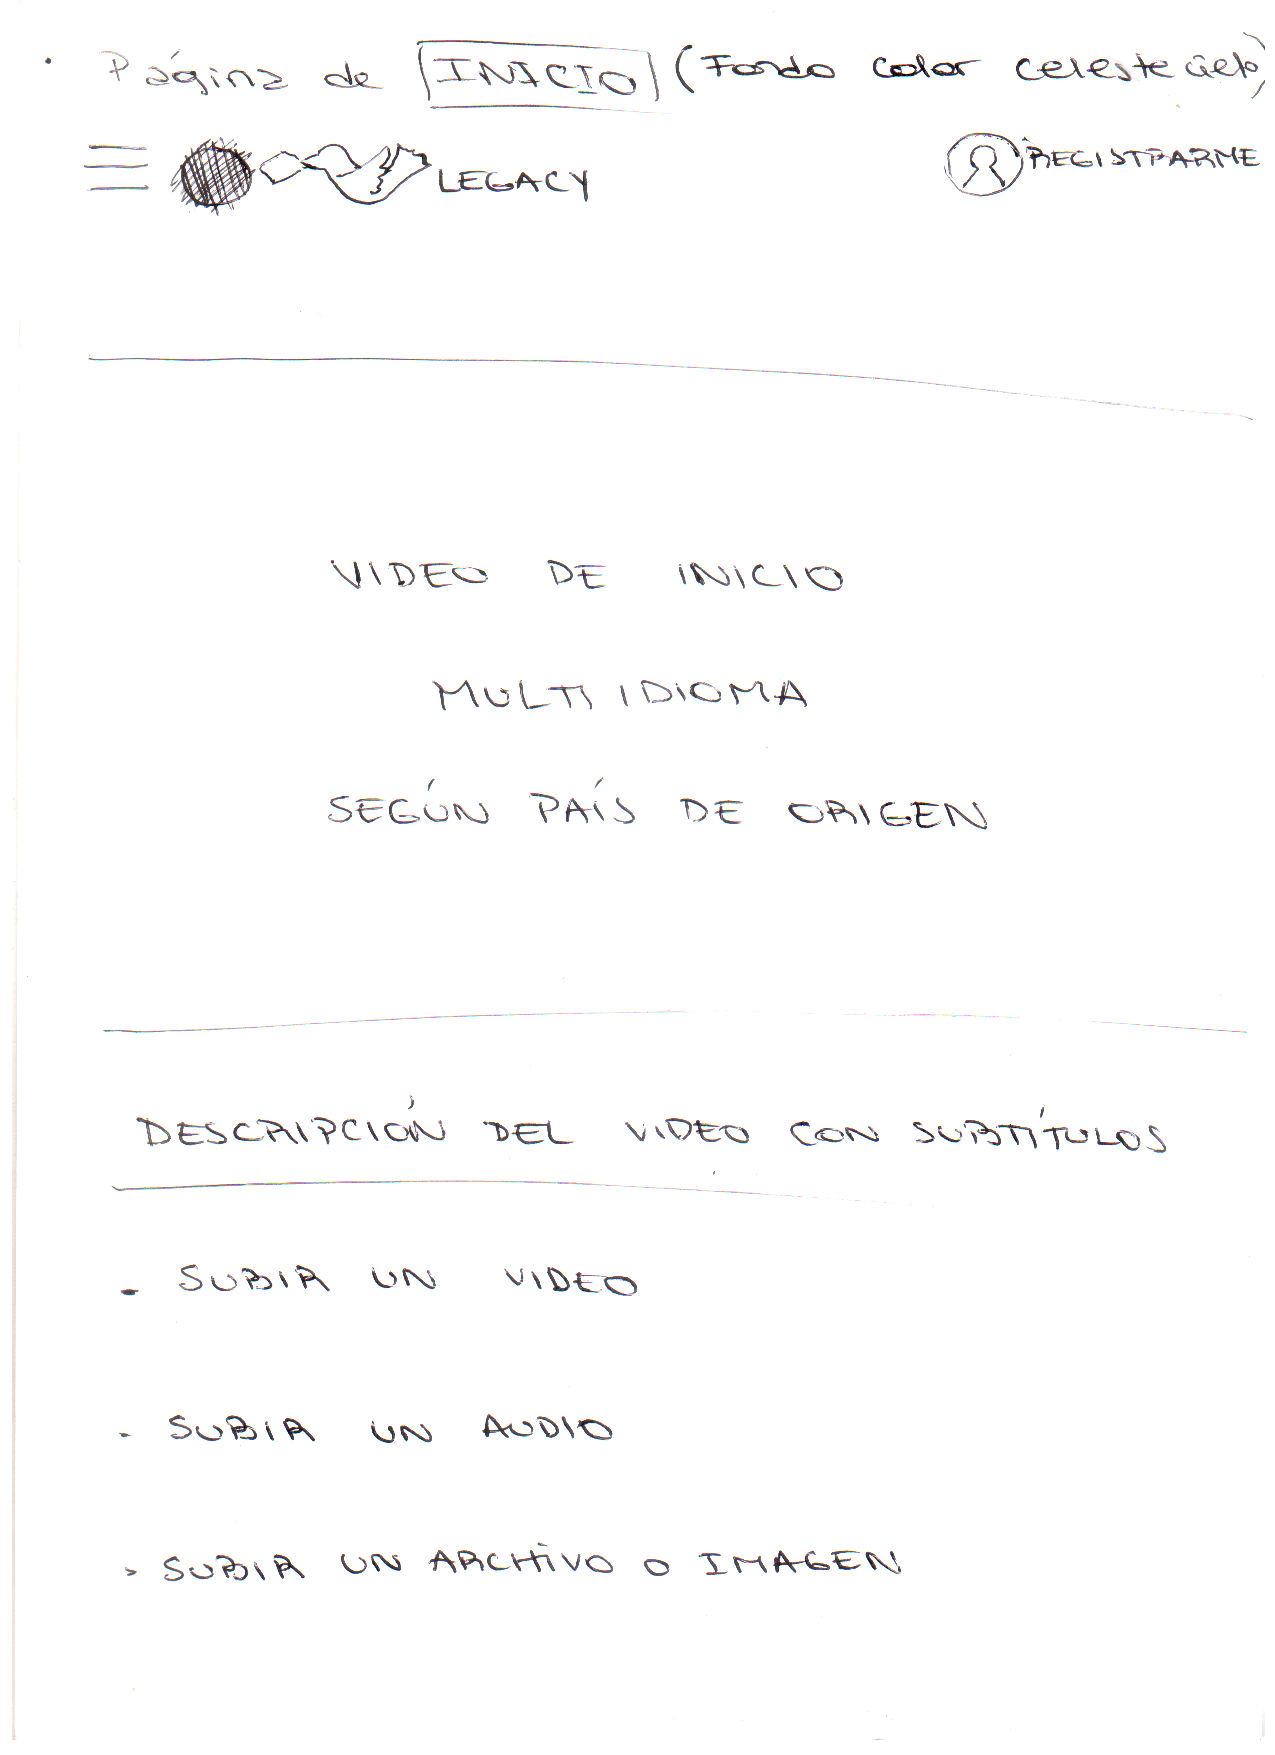 · Página de INICIO (Fondo color celeste cielo)
LEGACY
REGISTRARME
VIDEO DE INICIO
MULTI IDIOMA
SEGÚN PAÍS DE ORIGEN
DESCRIPCIÓN DEL VIDEO CON SUBTÍTULOS
- SUBIR UN VIDEO
- SUBIR UN AUDIO
- SUBIR UN ARCHIVO O IMAGEN